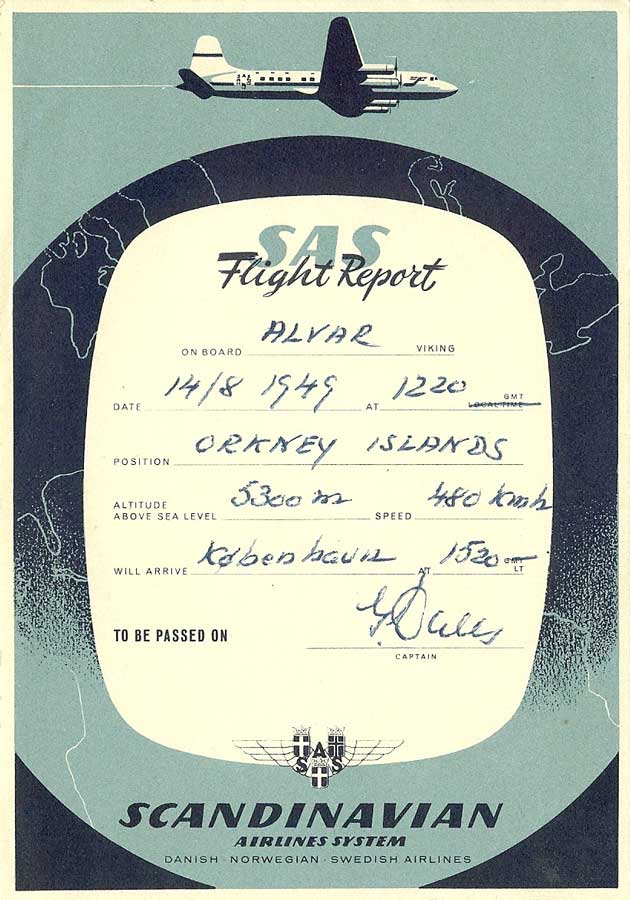 SAS
Flight Report
ON BOARD ALVAR VIKING
DATE 14/8 1949 AT 1220 GMT
LOCAL TIME
POSITION ORKNEY ISLANDS
ALTITUDE
ABOVE SEA LEVEL 5300 m SPEED 480 kmh
WILL ARRIVE København AT 1520 GMT
LT
TO BE PASSED ON
CAPTAIN
SAS
SCANDINAVIAN
AIRLINES SYSTEM
DANISH · NORWEGIAN · SWEDISH AIRLINES